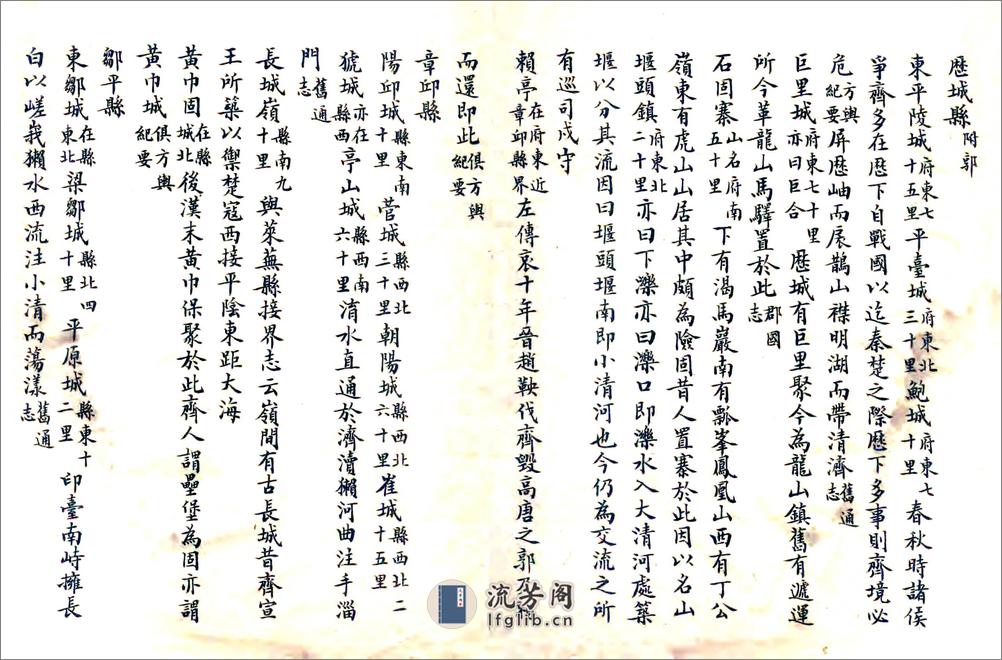 歴城縣附郭
東平陵城府東七十五里平臺城府東北三十里鮑城府東七十里春秋時諸侯
爭齊多在歴下自戰國以迄秦楚之際歴下多事則齊境必
危方輿紀要屏歴岫而扆鵲山襟明湖而帶清濟舊通志
巨里城府東七十里亦曰巨合歴城有巨里聚今為龍山鎮舊有遞運
所今革龍山馬驛置於此郡國志
石固寨山名府南五十里下有渴馬巖南有瓢峯鳳凰山西有丁公
嶺東有虎山山居其中頗為險固昔人置寨於此因以名山
堰頭鎮府東北二十里亦曰下濼亦曰濼口即濼水入大清河處築
堰以分其流因曰堰頭堰南即小清河也今仍為交流之所
有巡司戍守
賴亭在府東近章邱縣界左傳哀十年晉趙鞅伐齊毀高唐之郭及賴
而還即此俱方輿紀要
章邱縣
陽邱城縣東南十里菅城縣西北三十里朝陽城縣西北六十里崔城縣西北二十五里
猇城亦在縣西亭山城縣西南六十里淯水直通於濟瀆獺河曲注手淄
門舊通志
長城嶺縣南九十里與萊蕪縣接界志云嶺間有古長城昔齊宣
王所築以禦楚寇西接平陰東距大海
黃巾固在縣城北後漢末黃巾保聚於此齊人謂壘堡為固亦謂
黃巾城俱方輿紀要
鄒平縣
東鄒城在縣東北梁鄒城縣北四十里平原城縣東十二里印臺南峙擁長
白以嵯峩獺水西流注小清而蕩漾舊通志
流芳阁
lfglib.cn